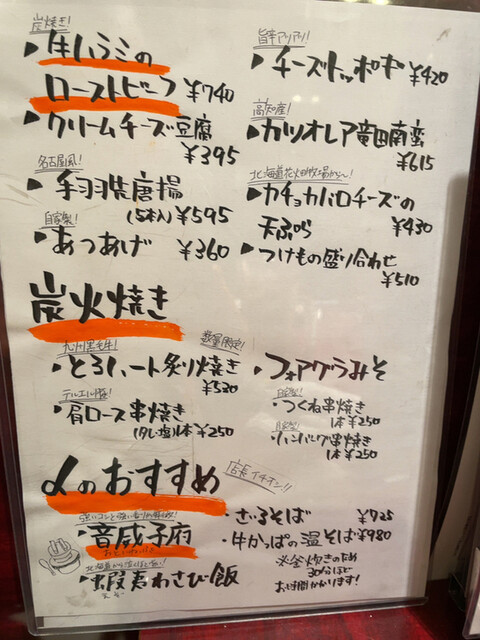 炭焼き!
牛ハラミの
ローストビーフ ¥740
クリームチーズ豆腐
¥395
名古屋風!
手羽先唐揚
(5本入) ¥595
自家製!
あつあげ ¥360
旨辛アリアリ!
チーズトッポギ ¥420
高知産!
カツオレア竜田南蛮
¥615
北海道花畑牧場から〜!
カチョカバロチーズの
天ぷら ¥430
つけもの盛り合わせ
¥510
炭火焼き
九州黒毛牛! 数量限定!
とろハート炙り焼き
¥530
肩ロース串焼き
(タレ・塩) 1本 ¥250
フォアグラみそ
自家製!
つくね串焼き
1本 ¥250
自家製!
ハンバーグ串焼き
1本 ¥250
〆のおすすめ
店長イチオシ!!
音威子府
蝦夷わさび飯
ざるそば ¥725
牛かっぱの温そば ¥980
※釜炊きのため
30分ほど
お時間かかります!